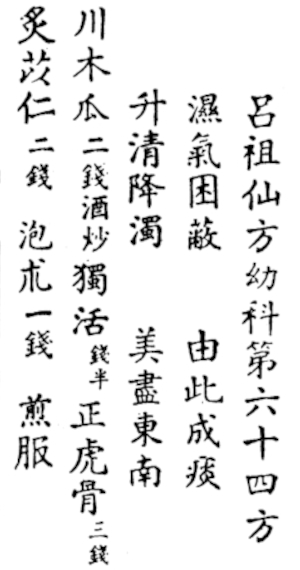 呂祖仙方幼科第六十四方
濕氣困蔽 由此成痰
升清降濁 美盡東南
川木瓜二錢酒炒獨活錢半正虎骨三錢
炙苡仁二錢 泡朮一錢 煎服